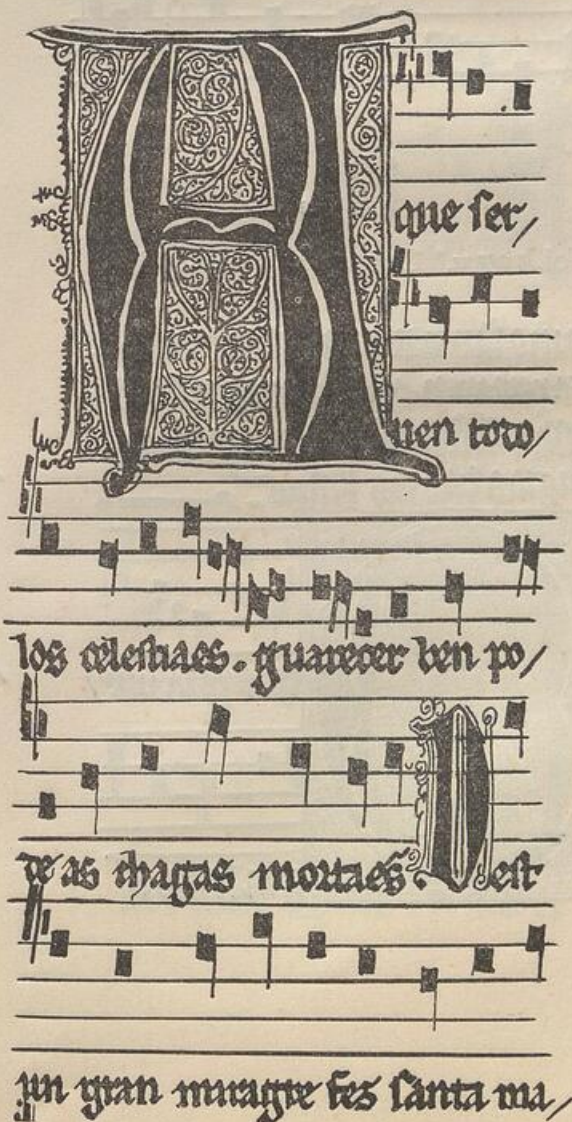 A que ser/
uen todo/
los celestiaes. guarecer ben po/
de as chagas mortaes. Dest
un gran miragre fes santa ma/